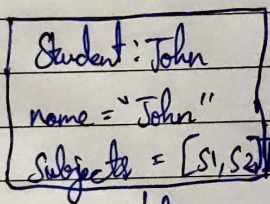 Student : John
name = "John"
Subjects = [S1, S2]